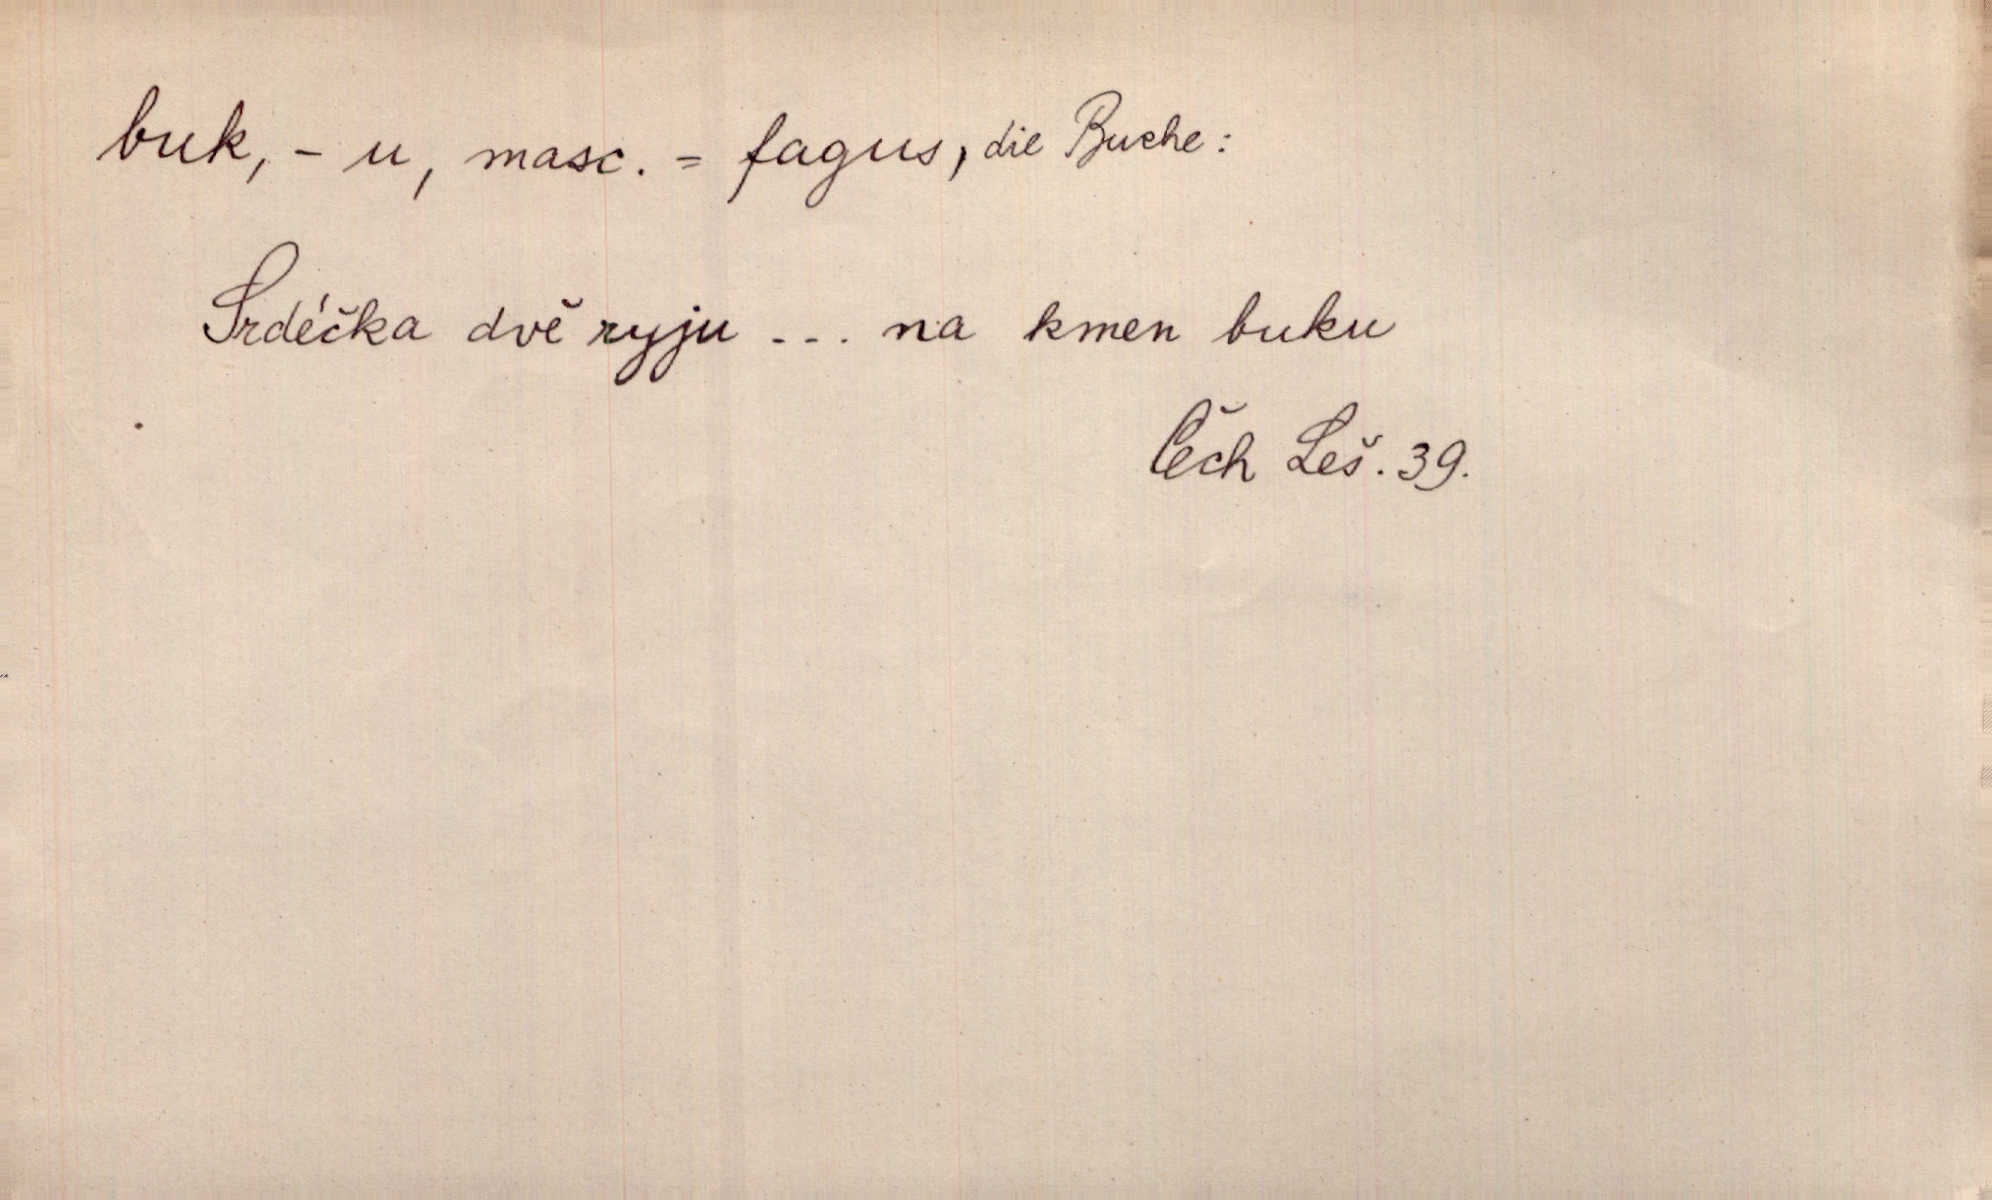 buk, - u, masc. = fagus, die Buche:
Srdéčka dvě ryju ... na kmen buku
Čech Leš. 39.